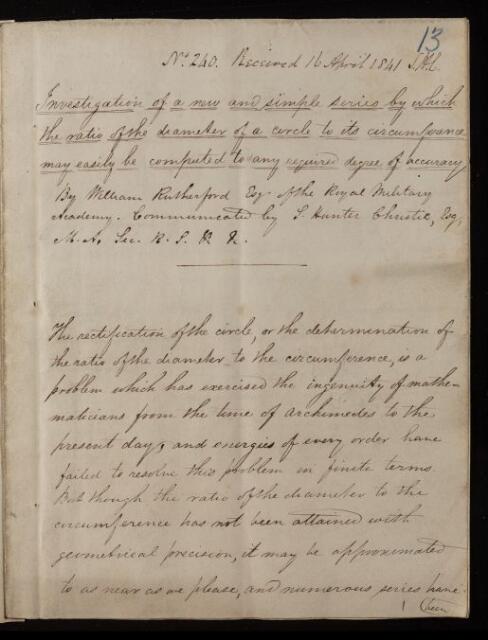 13
No. 240. Received 16 April 1841 S.H.C.
Investigation of a new and simple series by which
the ratio of the diameter of a circle to its circumference
may easily be computed to any required degree of accuracy
By William Rutherford Esq of the Royal Military
Academy. Communicated by S. Hunter Christie, Esq,
M. A. Sec. R. S. &. &.
The rectification of the circle, or the determination of
the ratio of the diameter to the circumference, is a
problem which has exercised the ingenuity of mathe-
maticians from the time of Archimedes to the
present day, and energies of every order have
failed to resolve this problem in finite terms.
But though the ratio of the diameter to the
circumference has not been attained with
geometrical precision, it may be approximated
to as near as we please, and numerous series have
been